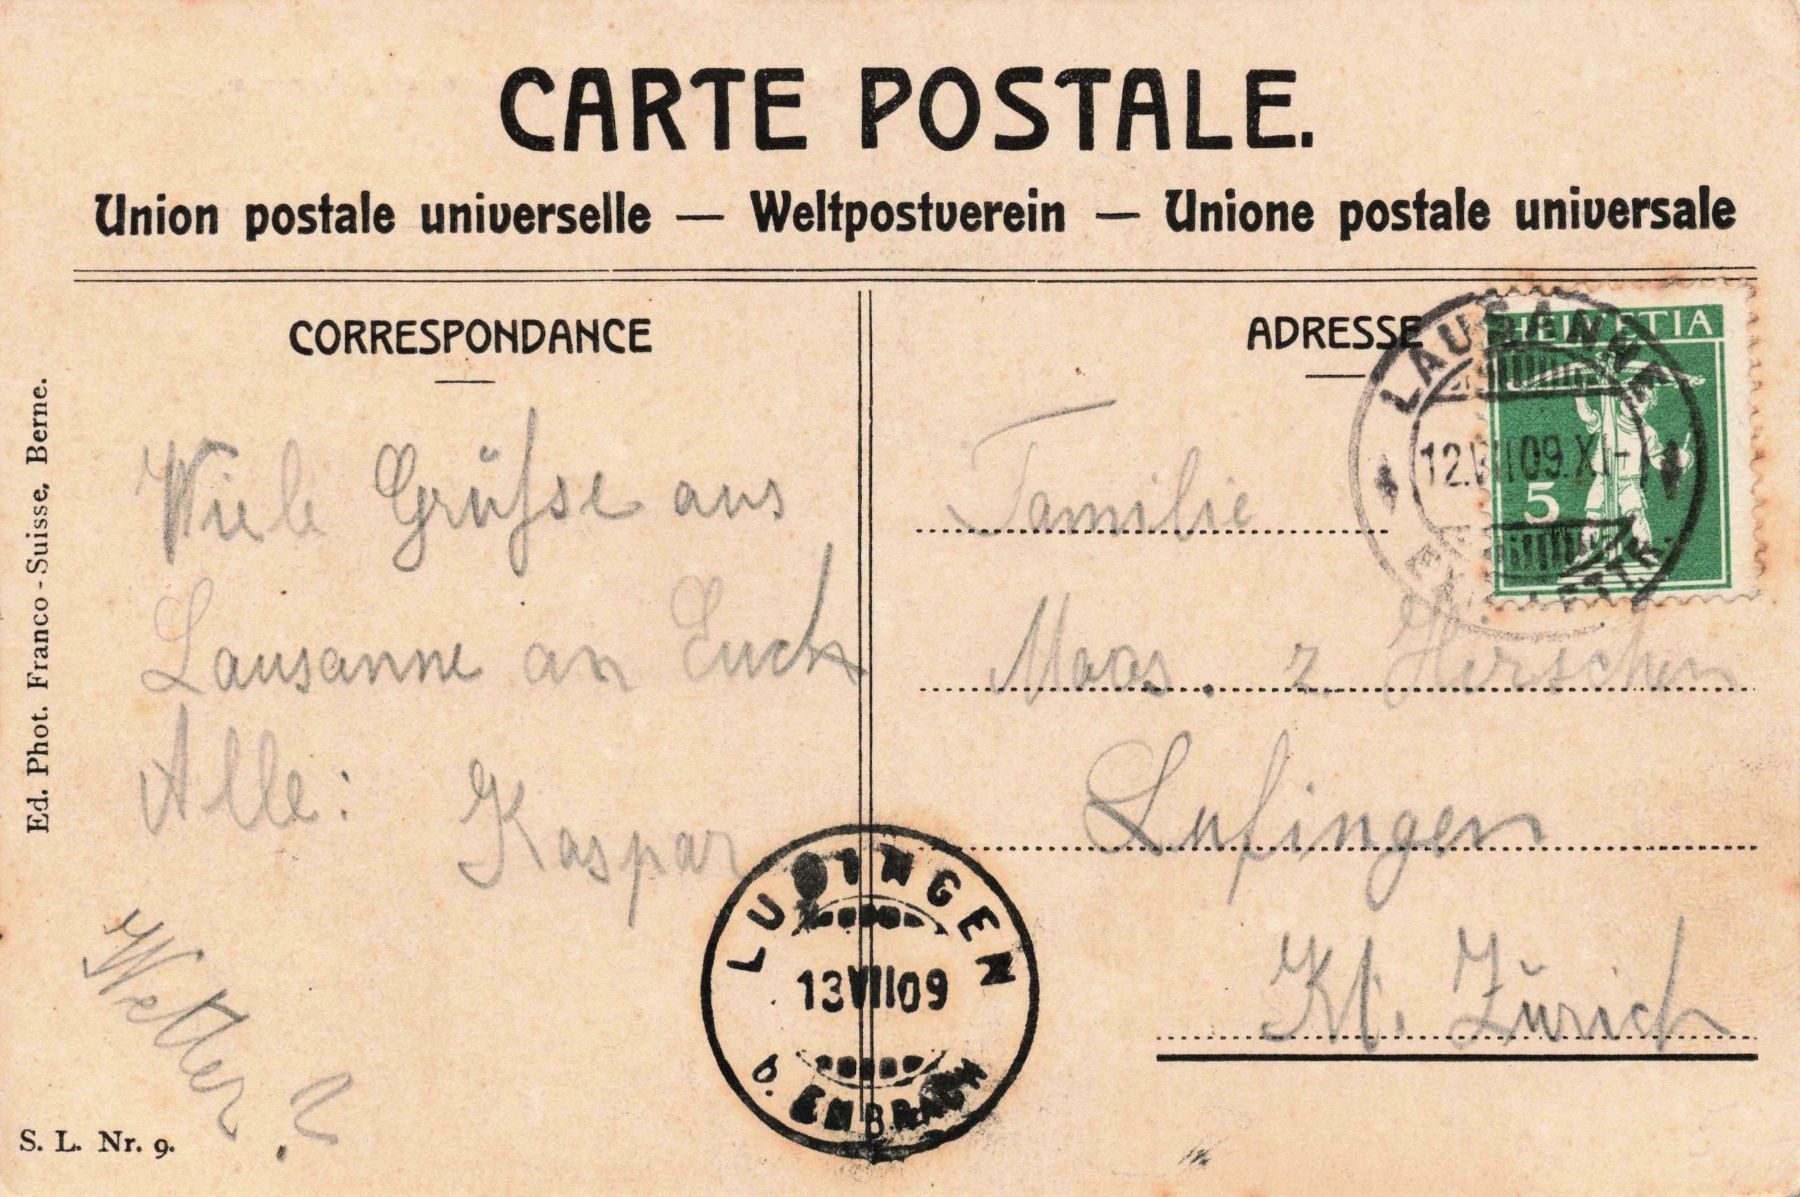 CARTE POSTALE.
Union postale universelle — Weltpostverein — Unione postale universale
CORRESPONDANCE
Viele Grüsse aus
Lausanne an Euch
Alle:
Kaspar
Wetter ?
Ed. Phot. Franco-Suisse, Berne.
S. L. Nr. 9.
ADRESSE
Familie
Maas. z. Hirschen
Lufingen
Kt. Zürich
HELVETIA
5
LAUSANNE
12.VII09.XI-
LUFINGEN
13VII09
b. EMBRACH